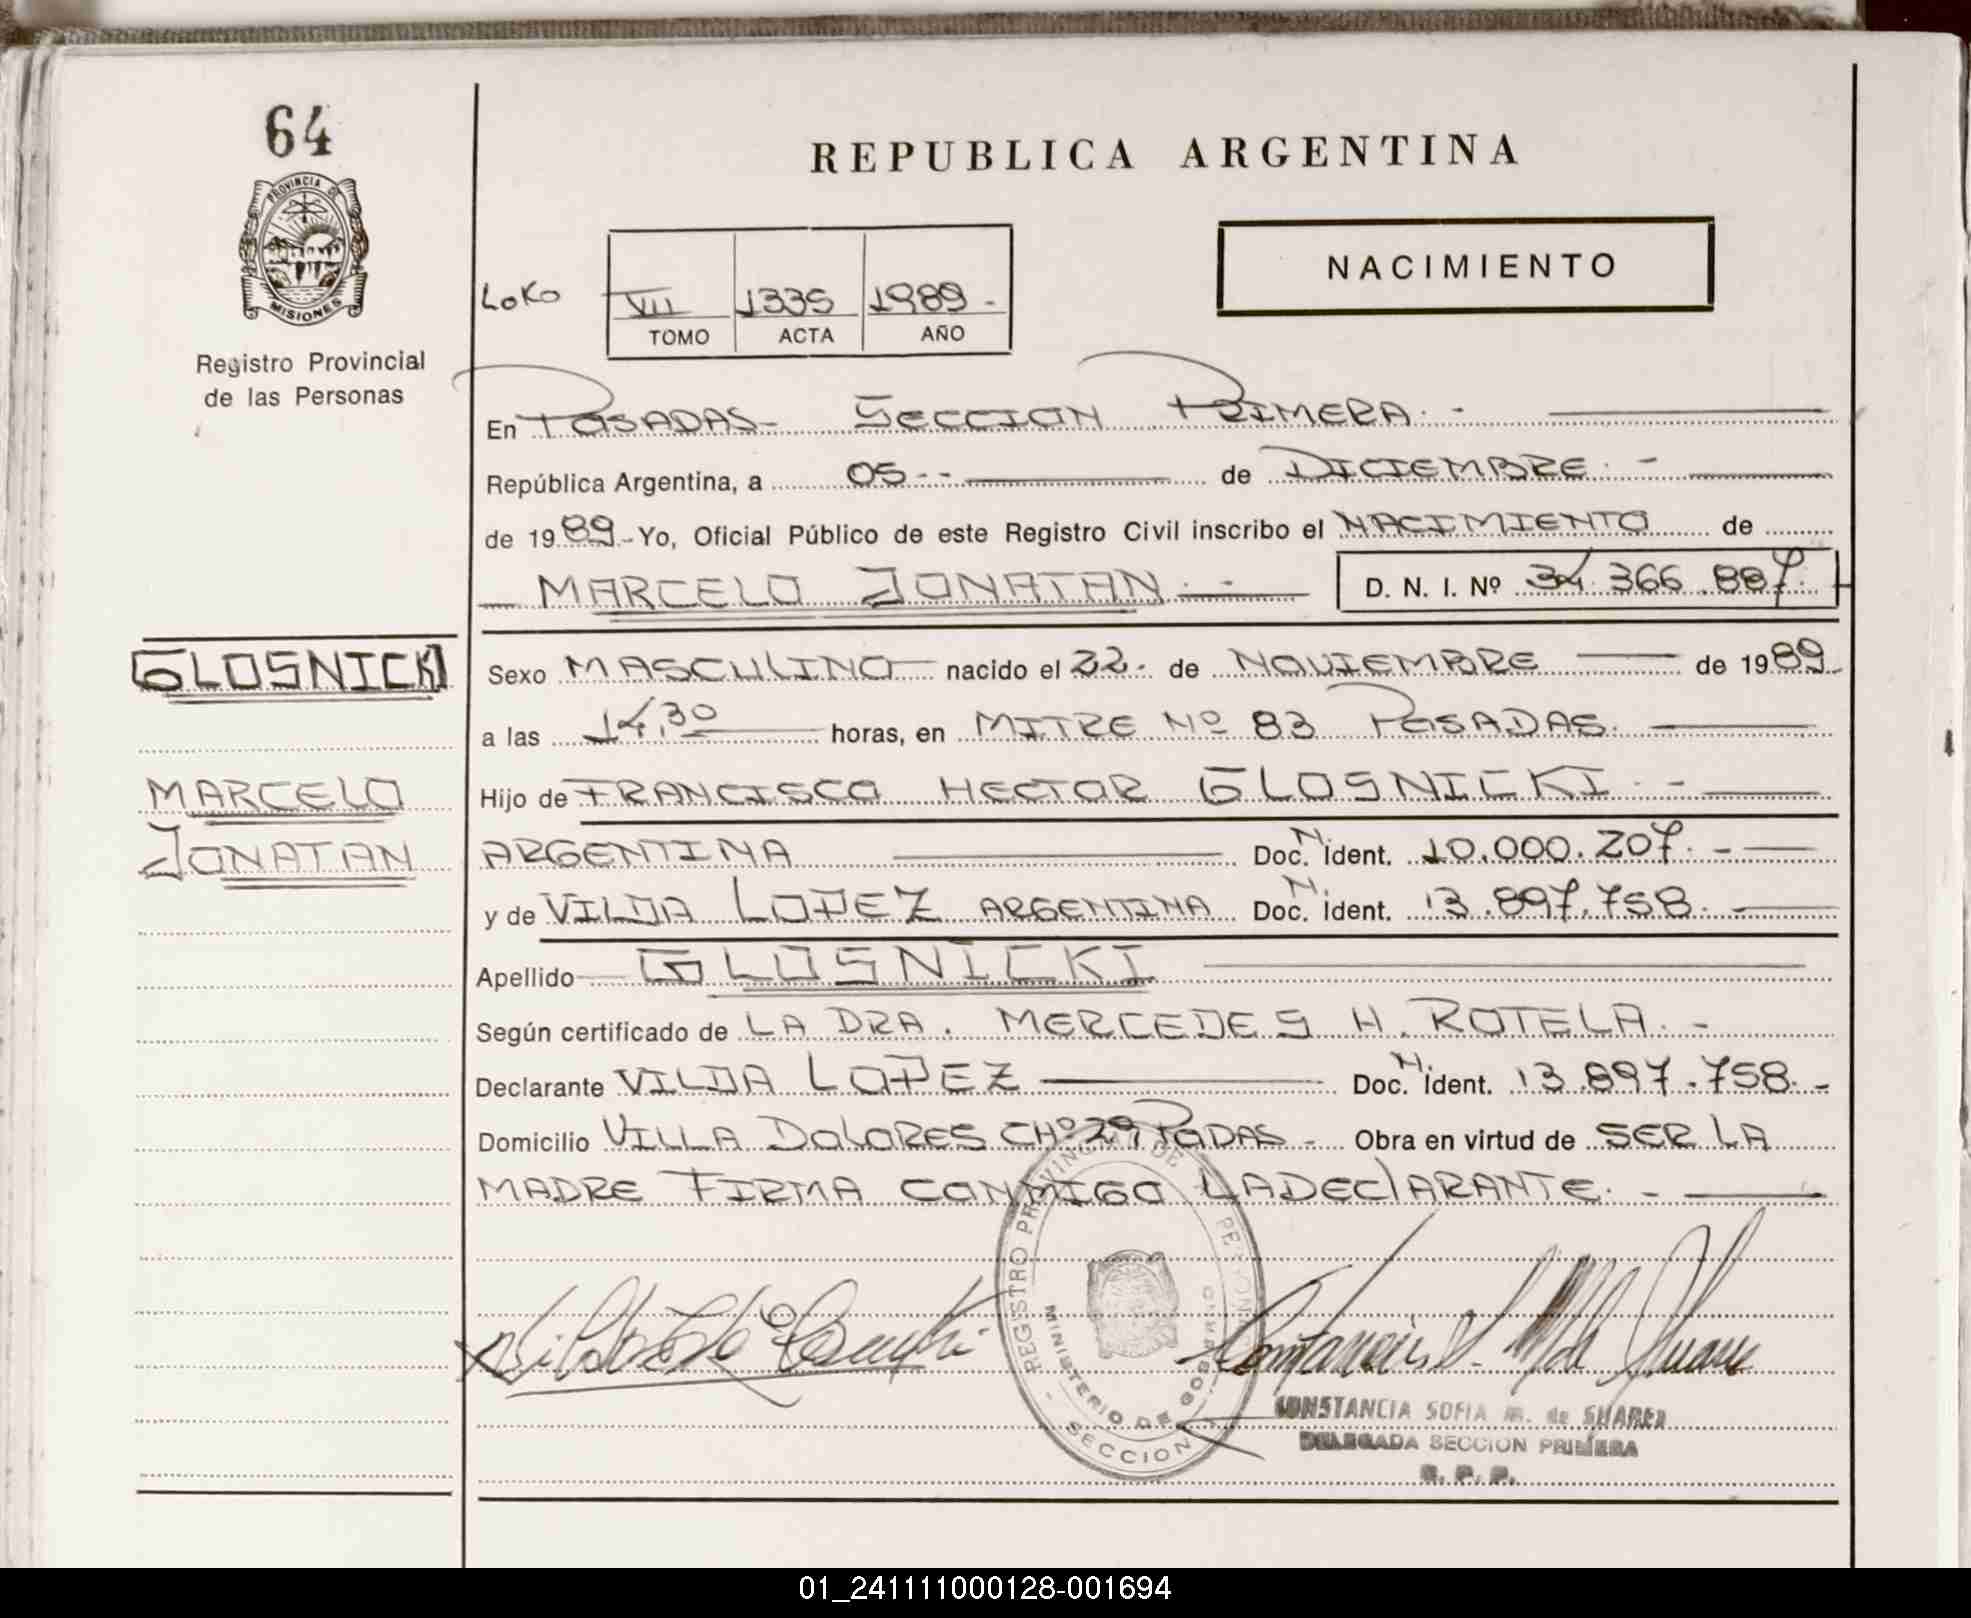 64
PROVINCIA DE
MISIONES
Registro Provincial
de las Personas
REPUBLICA ARGENTINA
NACIMIENTO
LOKO
VII 1335 1989-
TOMO ACTA AÑO
En POSADAS- SECCION PRIMERA.-
República Argentina, a 05-- de DICIEMBRE.-
de 1989- Yo, Oficial Público de este Registro Civil inscribo el NACIMIENTO de
MARCELO JONATAN.- D. N. I. Nº 34.366.887.
GLOSNICKI
Sexo MASCULINO nacido el 22. de NOVIEMBRE de 1989-
a las 14,30 horas, en MITRE Nº 83 POSADAS.
MARCELO
JONATAN
Hijo de FRANCISCO HECTOR GLOSNICKI.-
ARGENTINA Doc. N. ident. 10.000.207.-
y de VILDA LOPEZ ARGENTINA Doc. N. ident. 13.897.758.
Apellido GLOSNICKI
Según certificado de LA DRA. MERCEDES H. ROTELA.-
Declarante VILDA LOPEZ Doc. N. ident. 13.897.758.-
Domicilio VILLA DOLORES CHº 29 PODAS- Obra en virtud de SER LA
MADRE FIRMA CONMIGO LA DEClARANTE.-
REGISTRO PROVINCIAL DE PERSONAS
MINISTERIO DE GOBIERNO
SECCION
CONSTANCIA SOFIA M. de SUAREZ
DELEGADA SECCION PRIMERA
R. P. P.
01_241111000128-001694